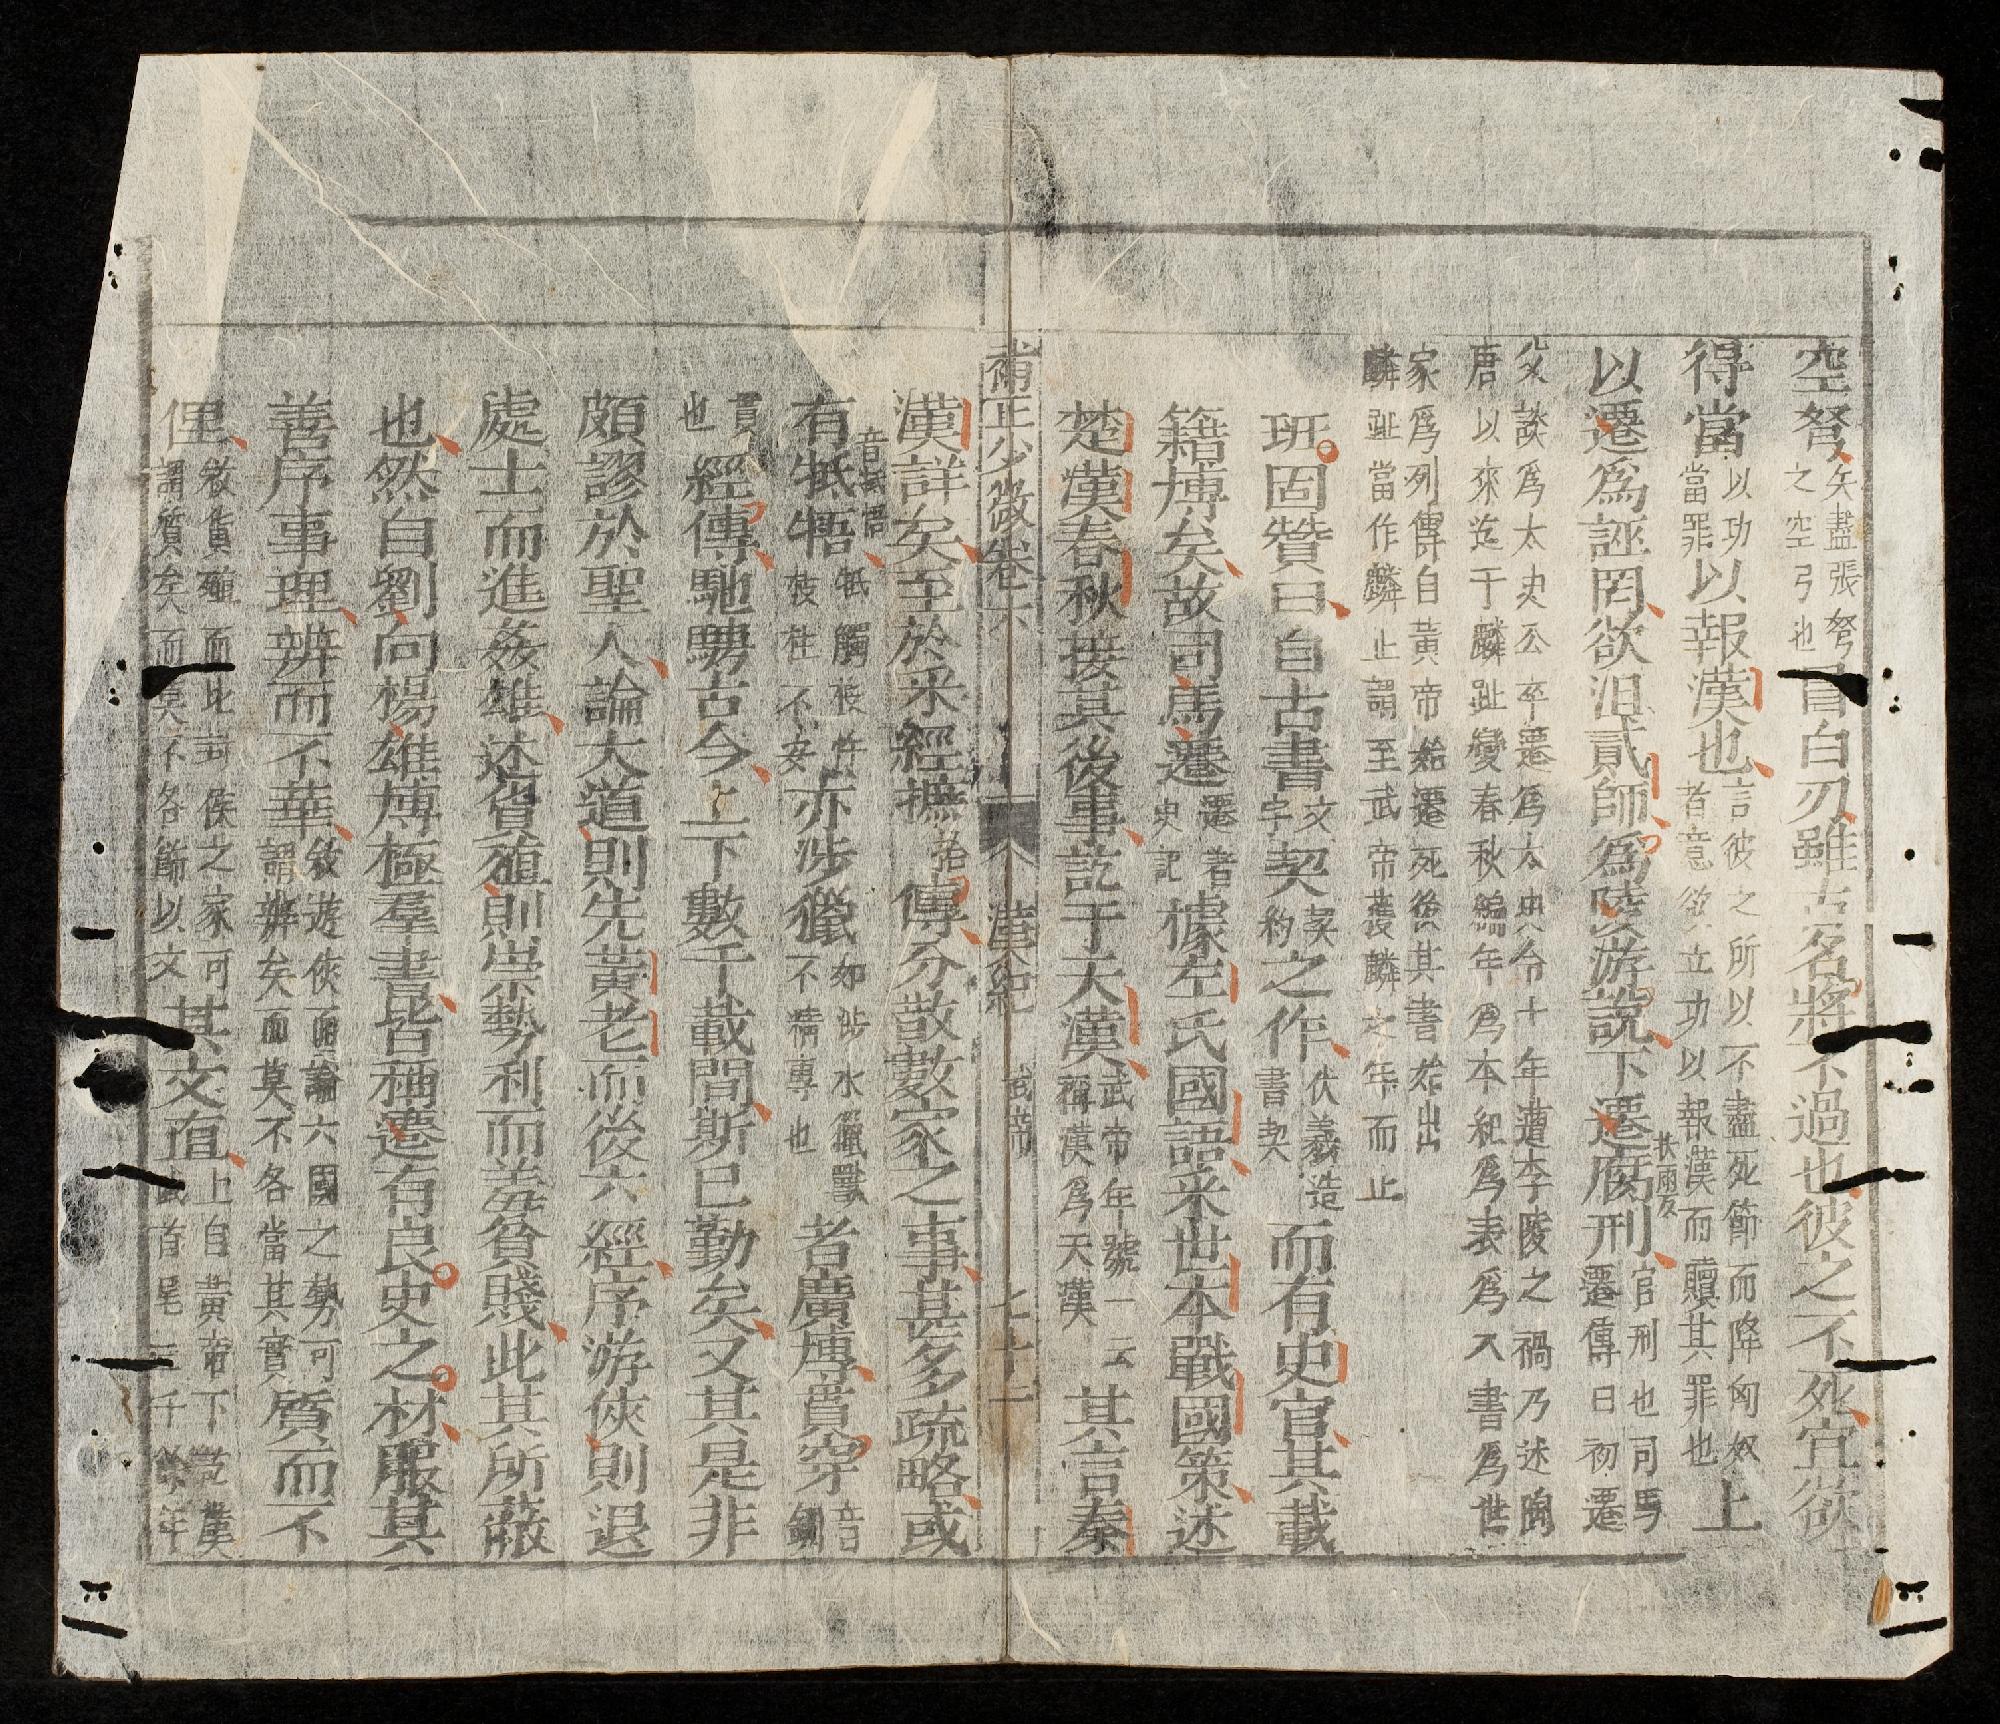 空弩矢盡張弩之空弓也冒白刃雖古名將不過也彼之不死宜欲
得當以功以當罪以報漢也言彼之所以不盡死節而降匈奴者意欲立功以報漢而贖其罪也上
以遷爲誣罔欲沮貳師爲陵游說下遷腐刑扶雨反官刑也司馬遷傳曰初遷
父談爲太史公卒遷爲太史令十年遭李陵之禍乃述陶唐以來迄于麟趾變春秋編年爲本紀爲表爲八書爲世
家爲列傳自黃帝始遷死後其書始出麟趾當作麟止謂至武帝獲麟之年而止
班固贊曰自古書文字契契約之作伏羲造書契而有史官其載
籍博矣故司馬遷遷者史記據左氏國語采世本戰國策述
楚漢春秋接其後事訖于天漢武帝年號一云稱漢爲天漢其言秦
補正少微卷六 漢紀 武帝 七十二
漢詳矣至於采經摭拾傳分散數家之事甚多疏略或
有牴牾音抵悟牴觸枝忤枝柱不安亦涉獵如涉水獵獸不精專也者廣博貫穿音釧
貫也經傳馳騁古今上下數千載間斯已勤矣又其是非
頗謬於聖人論大道則先黃老而後六經序游俠則退
處士而進姦雄述貨殖則崇勢利而羞貧賤此其所蔽
也然自劉向楊雄博極羣書皆稱遷有良史之材服其
善序事理辨而不華敘遊俠而與論六國之勢可謂辨矣而莫不各當其實質而不
俚敘貨殖而比封侯之家可謂質矣而莫不各飾以文其文直上自黃帝下訖漢武首尾三千餘年